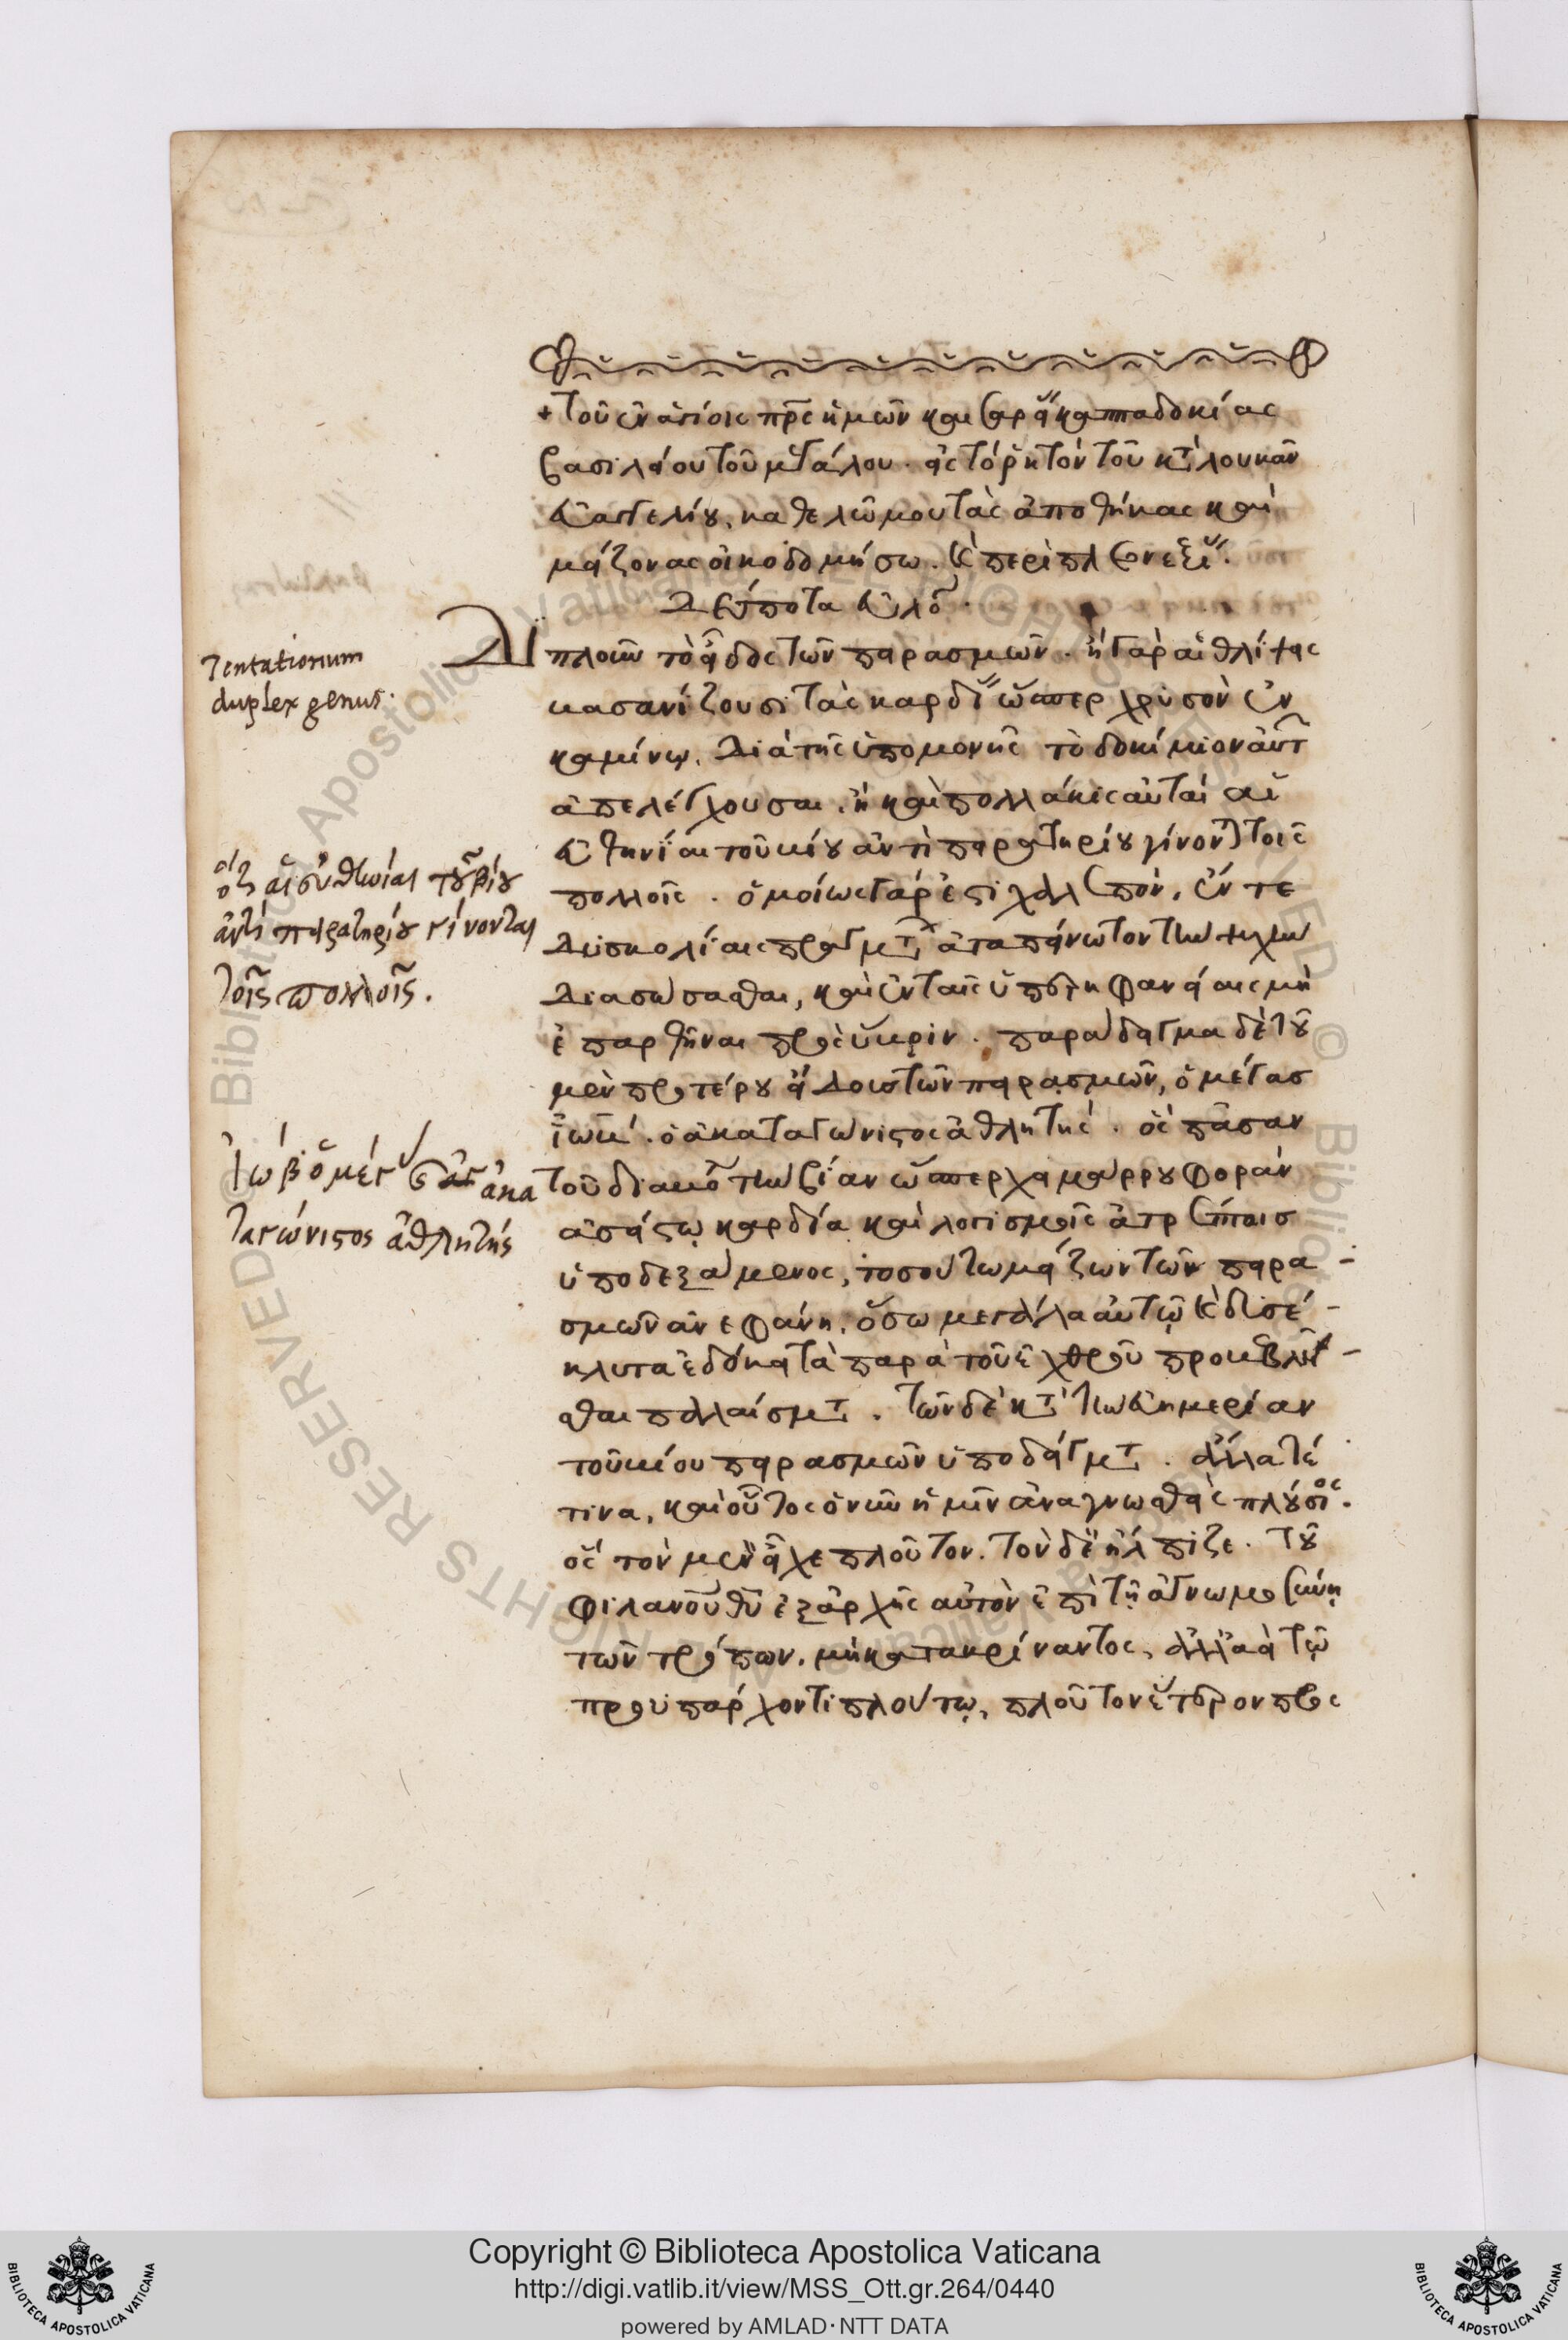 + τοῦ ἐν ἁγίοις πρς ἡμῶν και σαρείας καππαδοκίας
βασιλείου τοῦ μεγάλου. εἰς τὸ ῥητὸν τοῦ κτ λουκᾶν
εὐαγγελίου, καθελῶ μου τὰς ἀποθήκας καὶ
μείζονας οἰκοδομήσω. καὶ περὶ πλεονεξί.
Δέσποτα εὐλό.
Διπλοῦν τὸ εἶδος τῶν πειρασμῶν. ἢ γὰρ αἱ θλίψεις
βασανίζουσι τὰς καρδί ὥσπερ χρυσὸν ἐν
καμίνῳ, διὰ τῆς ὑπομονῆς τὸ δοκίμιον αὐτ
ἀπελέγχουσαι, ἢ καὶ πολλάκις αὐταὶ αἱ
εὐθηνίαι τοῦ βίου ἀντὶ πειρατηρίου γίνονται τοῖς
πολλοῖς. ὁμοίως γάρ ἐστι χαλεπὸν, ἔν τε
δυσκολίαις πραγμτ ἀταπείνωτον τὴν ψυχὴν
διασώσασθαι, καὶ ἐν ταῖς ὑπερηφανείαις μὴ
ἐπαρθῆναι πρὸς ὕβριν. παράδειγμα δὲ τοῦ
μὲν προτέρου εἴδους τῶν πειρασμῶν, ὁ μέγας
ἰώβ. ὁ ἀκαταγώνιστος ἀθλητής. ὃς πᾶσαν
τοῦ διαβό τὴν βίαν ὥσπερ χειμάρρου φορὰν
ἀσείστῳ καρδίᾳ καὶ λογισμοῖς ἀτρέπτοις
ὑποδεξάμενος, τοσούτῳ μείζων τῶν πειρα-
σμῶν ἀνεφάνη, ὅσῳ μεγάλα αὐτῷ καὶ δυσέ-
κλυτα ἐδόκει τὰ παρὰ τοῦ ἐχθροῦ προβεβλῆ-
σθαι παλαίσμτ. τῶν δὲ κτ τὴν εὐημερίαν
τοῦ βίου πειρασμῶν ὑποδείγμτ. ἄλλα τέ
τινα, καὶ οὗτος ὁ νῦν ἡμῖν ἀναγνωσθεὶς πλούσιος.
ὃς τὸν μὲν εἶχε πλοῦτον. τὸν δὲ ἤλπιζε. τοῦ
φιλανοῦ θῦ ἐξ ἀρχῆς αὐτὸν ἐπὶ τῇ ἀγνωμοσύνῃ
τῶν τρόπων, μὴ κατακρίναντος, ἀλλ' ἀεὶ τῷ
προυπάρχοντι πλούτῳ, πλοῦτον ἕτερον προς
Tentationum
duplex genus.
ὅτι αἱ εὐθηνίαι τοῦ βίου
ἀντὶ πειρατηρίου γίνονται
τοῖς πολλοῖς.
Ἰὼβ ὁ μέγας ἀκα
ταγώνιστος ἀθλητής
Copyright © Biblioteca Apostolica Vaticana
http://digi.vatlib.it/view/MSS_Ott.gr.264/0440
powered by AMLAD·NTT DATA
BIBLIOTECA APOSTOLICA VATICANA
BIBLIOTECA APOSTOLICA VATICANA